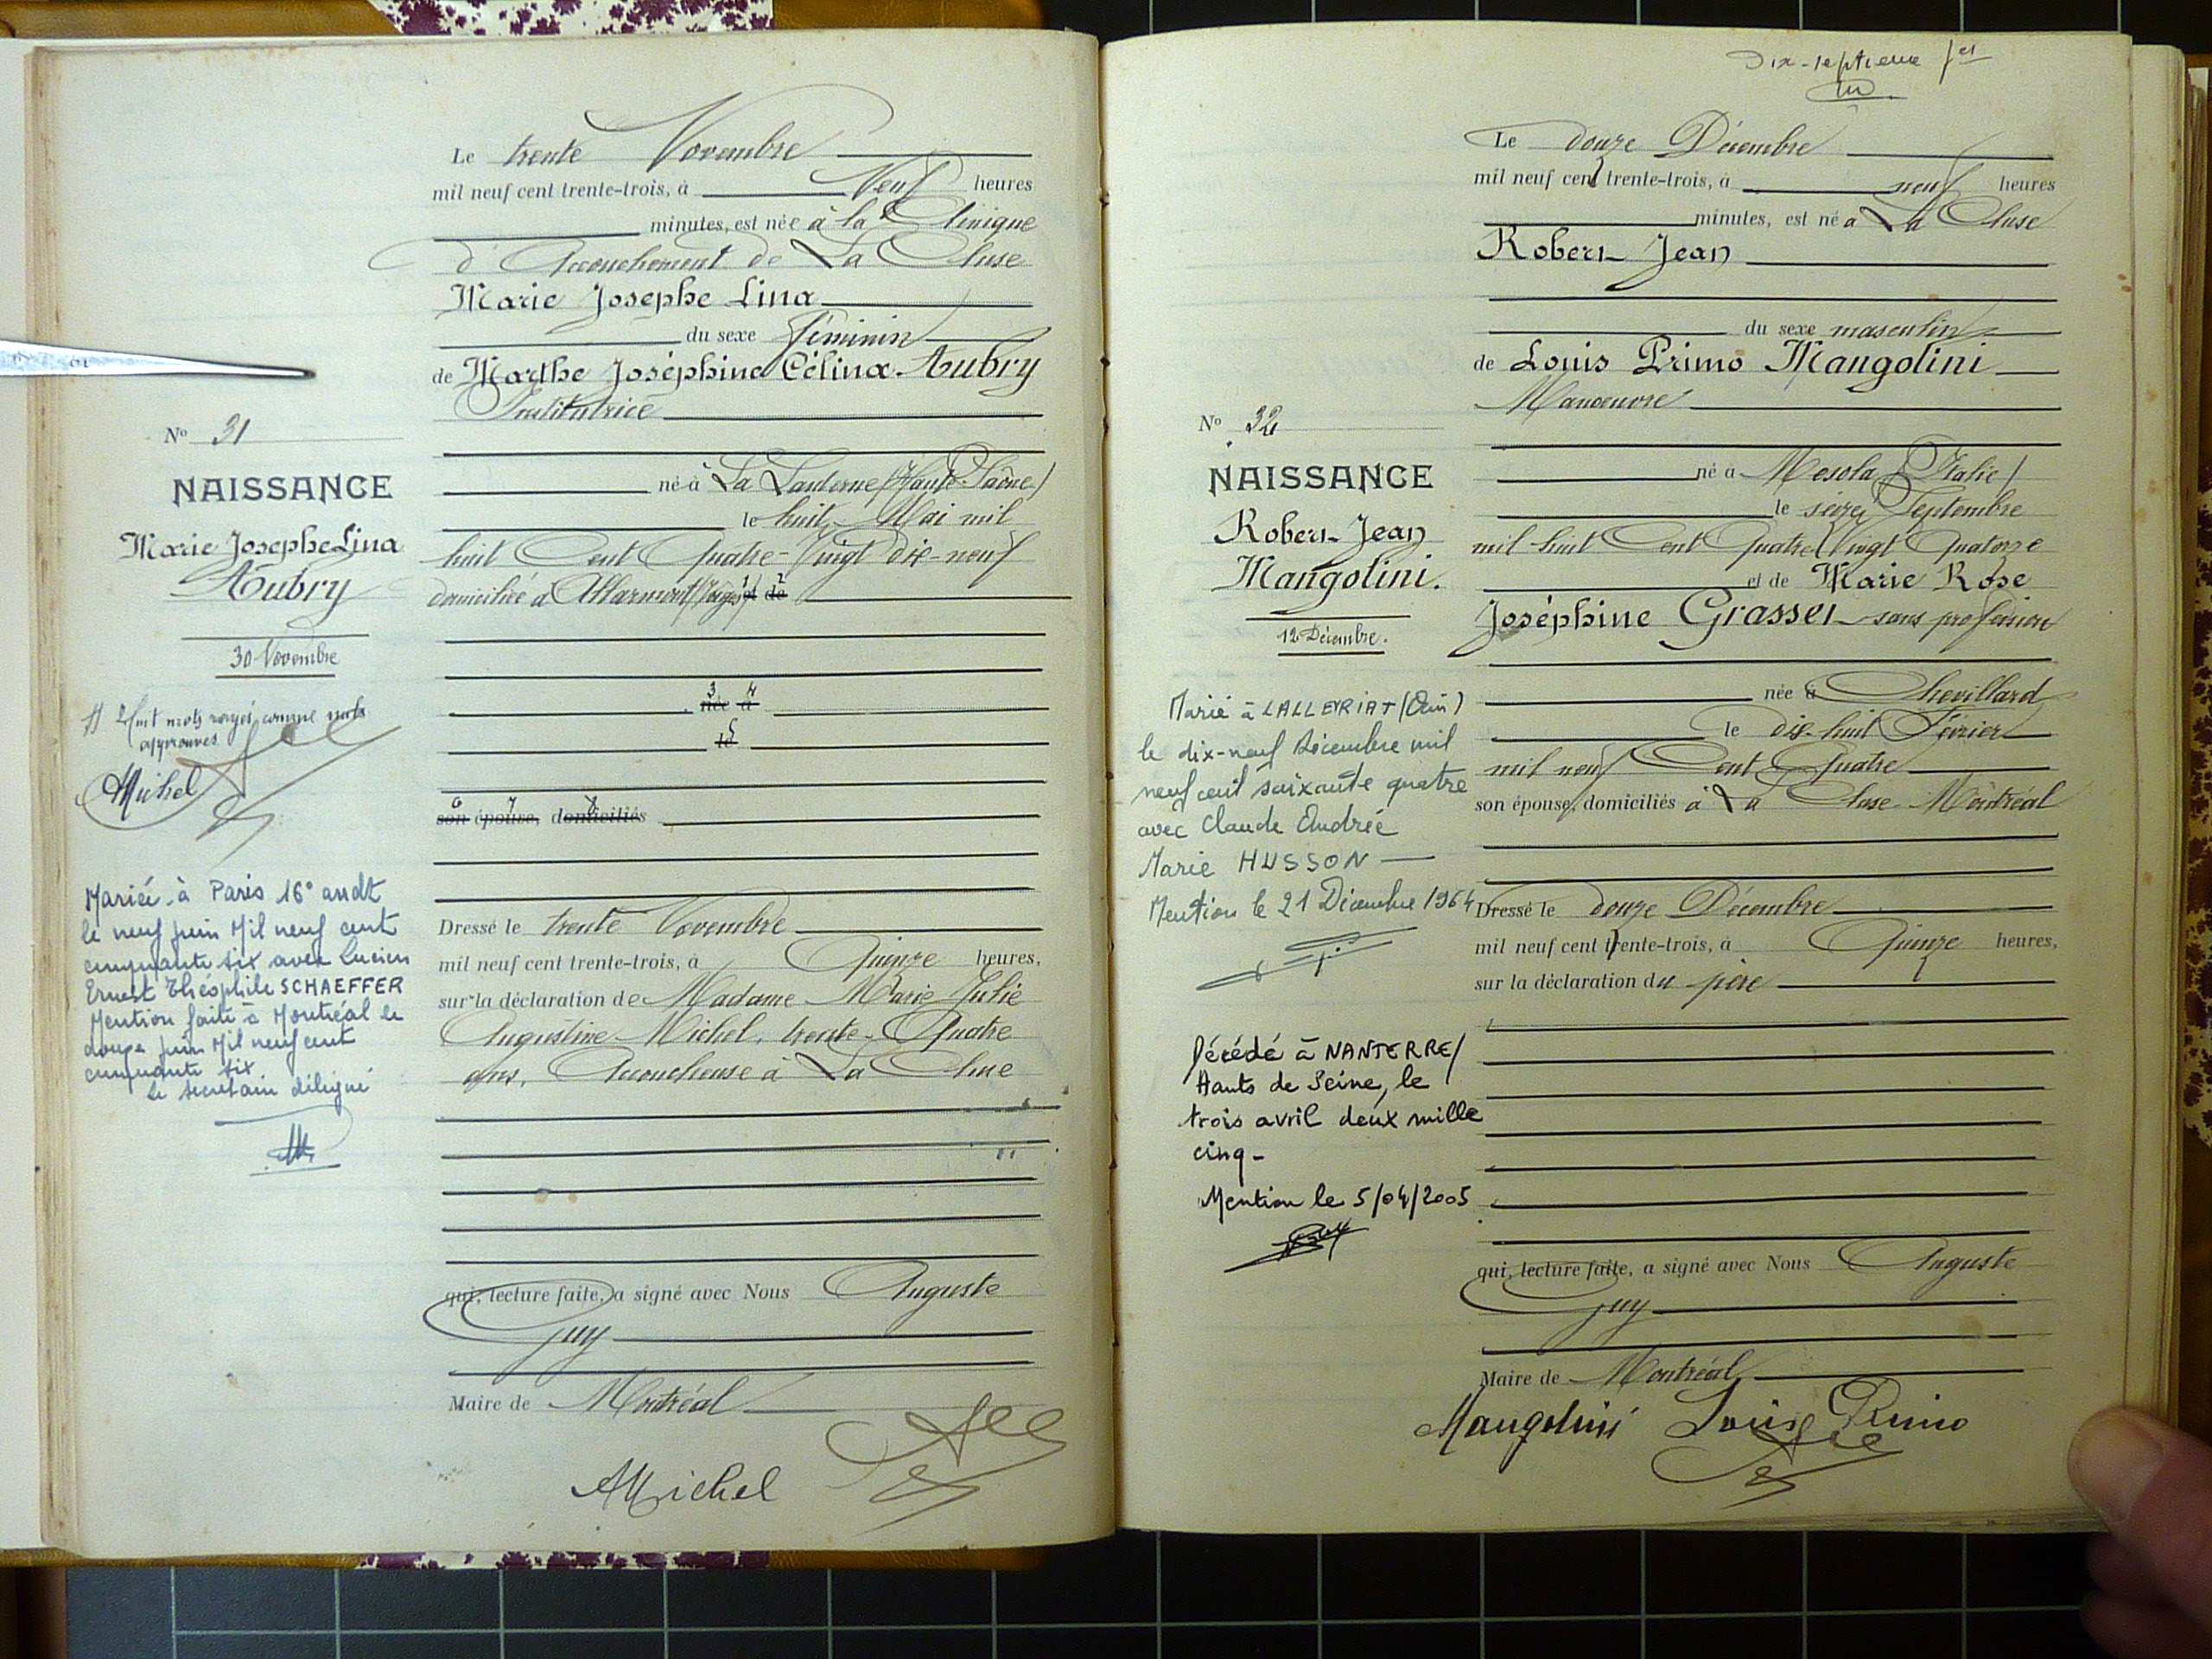 Le trente Novembre
mil neuf cent trente-trois, à Neuf heures
minutes, est née à la Clinique
d'Accouchement de La Cluse
Marie Josephe Lina
du sexe féminin
de Marthe Joséphine Célina Aubry
Institutrice
né à La Lanterne (Haute-Saône)
le huit Mai mil
huit Cent Quatre-Vingt dix-neuf
domiciliée à Allarmont (Vosges) 1 et 2 de
3 née 4 à
5 le
6 son 7 épouse, 8 domiciliés
Dressé le trente Novembre
mil neuf cent trente-trois, à Quinze heures,
sur la déclaration de Madame Marie Julie
Augustine Michel, trente-Quatre
ans, Accoucheuse à La Cluse
qui, lecture faite, a signé avec Nous Auguste
Guy
Maire de Montréal
AMichel
No 31
NAISSANCE
Marie Josephe Lina
Aubry
30 Novembre
huit mots rayés comme nuls
approuvés
AMichel
Mariée à Paris 16° arrdt
le neuf juin Mil neuf cent
cinquante six avec Lucien
Ernest Théophile SCHAEFFER
Mention faite à Montréal le
douze juin Mil neuf cent
cinquante six.
le secrétaire délégué
Dix-septième fet
Le douze Décembre
mil neuf cent trente-trois, à neuf heures
minutes, est né à La Cluse
Robert Jean
du sexe masculin
de Louis Primo Mangolini
Manoeuvre
né à Mesola (Italie)
le seize Septembre
mil huit Cent Quatre Vingt Quatorze
et de Marie Rose
Joséphine Grasset sans profession
née à Chevillard
le dix-huit Février
mil neuf Cent Quatre
son épouse, domiciliés à La Cluse Montréal
Dressé le douze Décembre
mil neuf cent trente-trois, à Quinze heures,
sur la déclaration du père
qui, lecture faite, a signé avec Nous Auguste
Guy
Maire de Montréal
Mangolini Louis Primo
No 32
NAISSANCE
Robert Jean
Mangolini.
12 Décembre.
Marié à LALLEYRIAT (Ain)
le dix-neuf Décembre mil
neuf cent soixante quatre
avec Claude Andrée
Marie HUSSON
Mention le 21 Décembre 1964
Décédé à NANTERRE/
Hauts de Seine, le
trois avril deux mille
cinq-
Mention le 5/04/2005